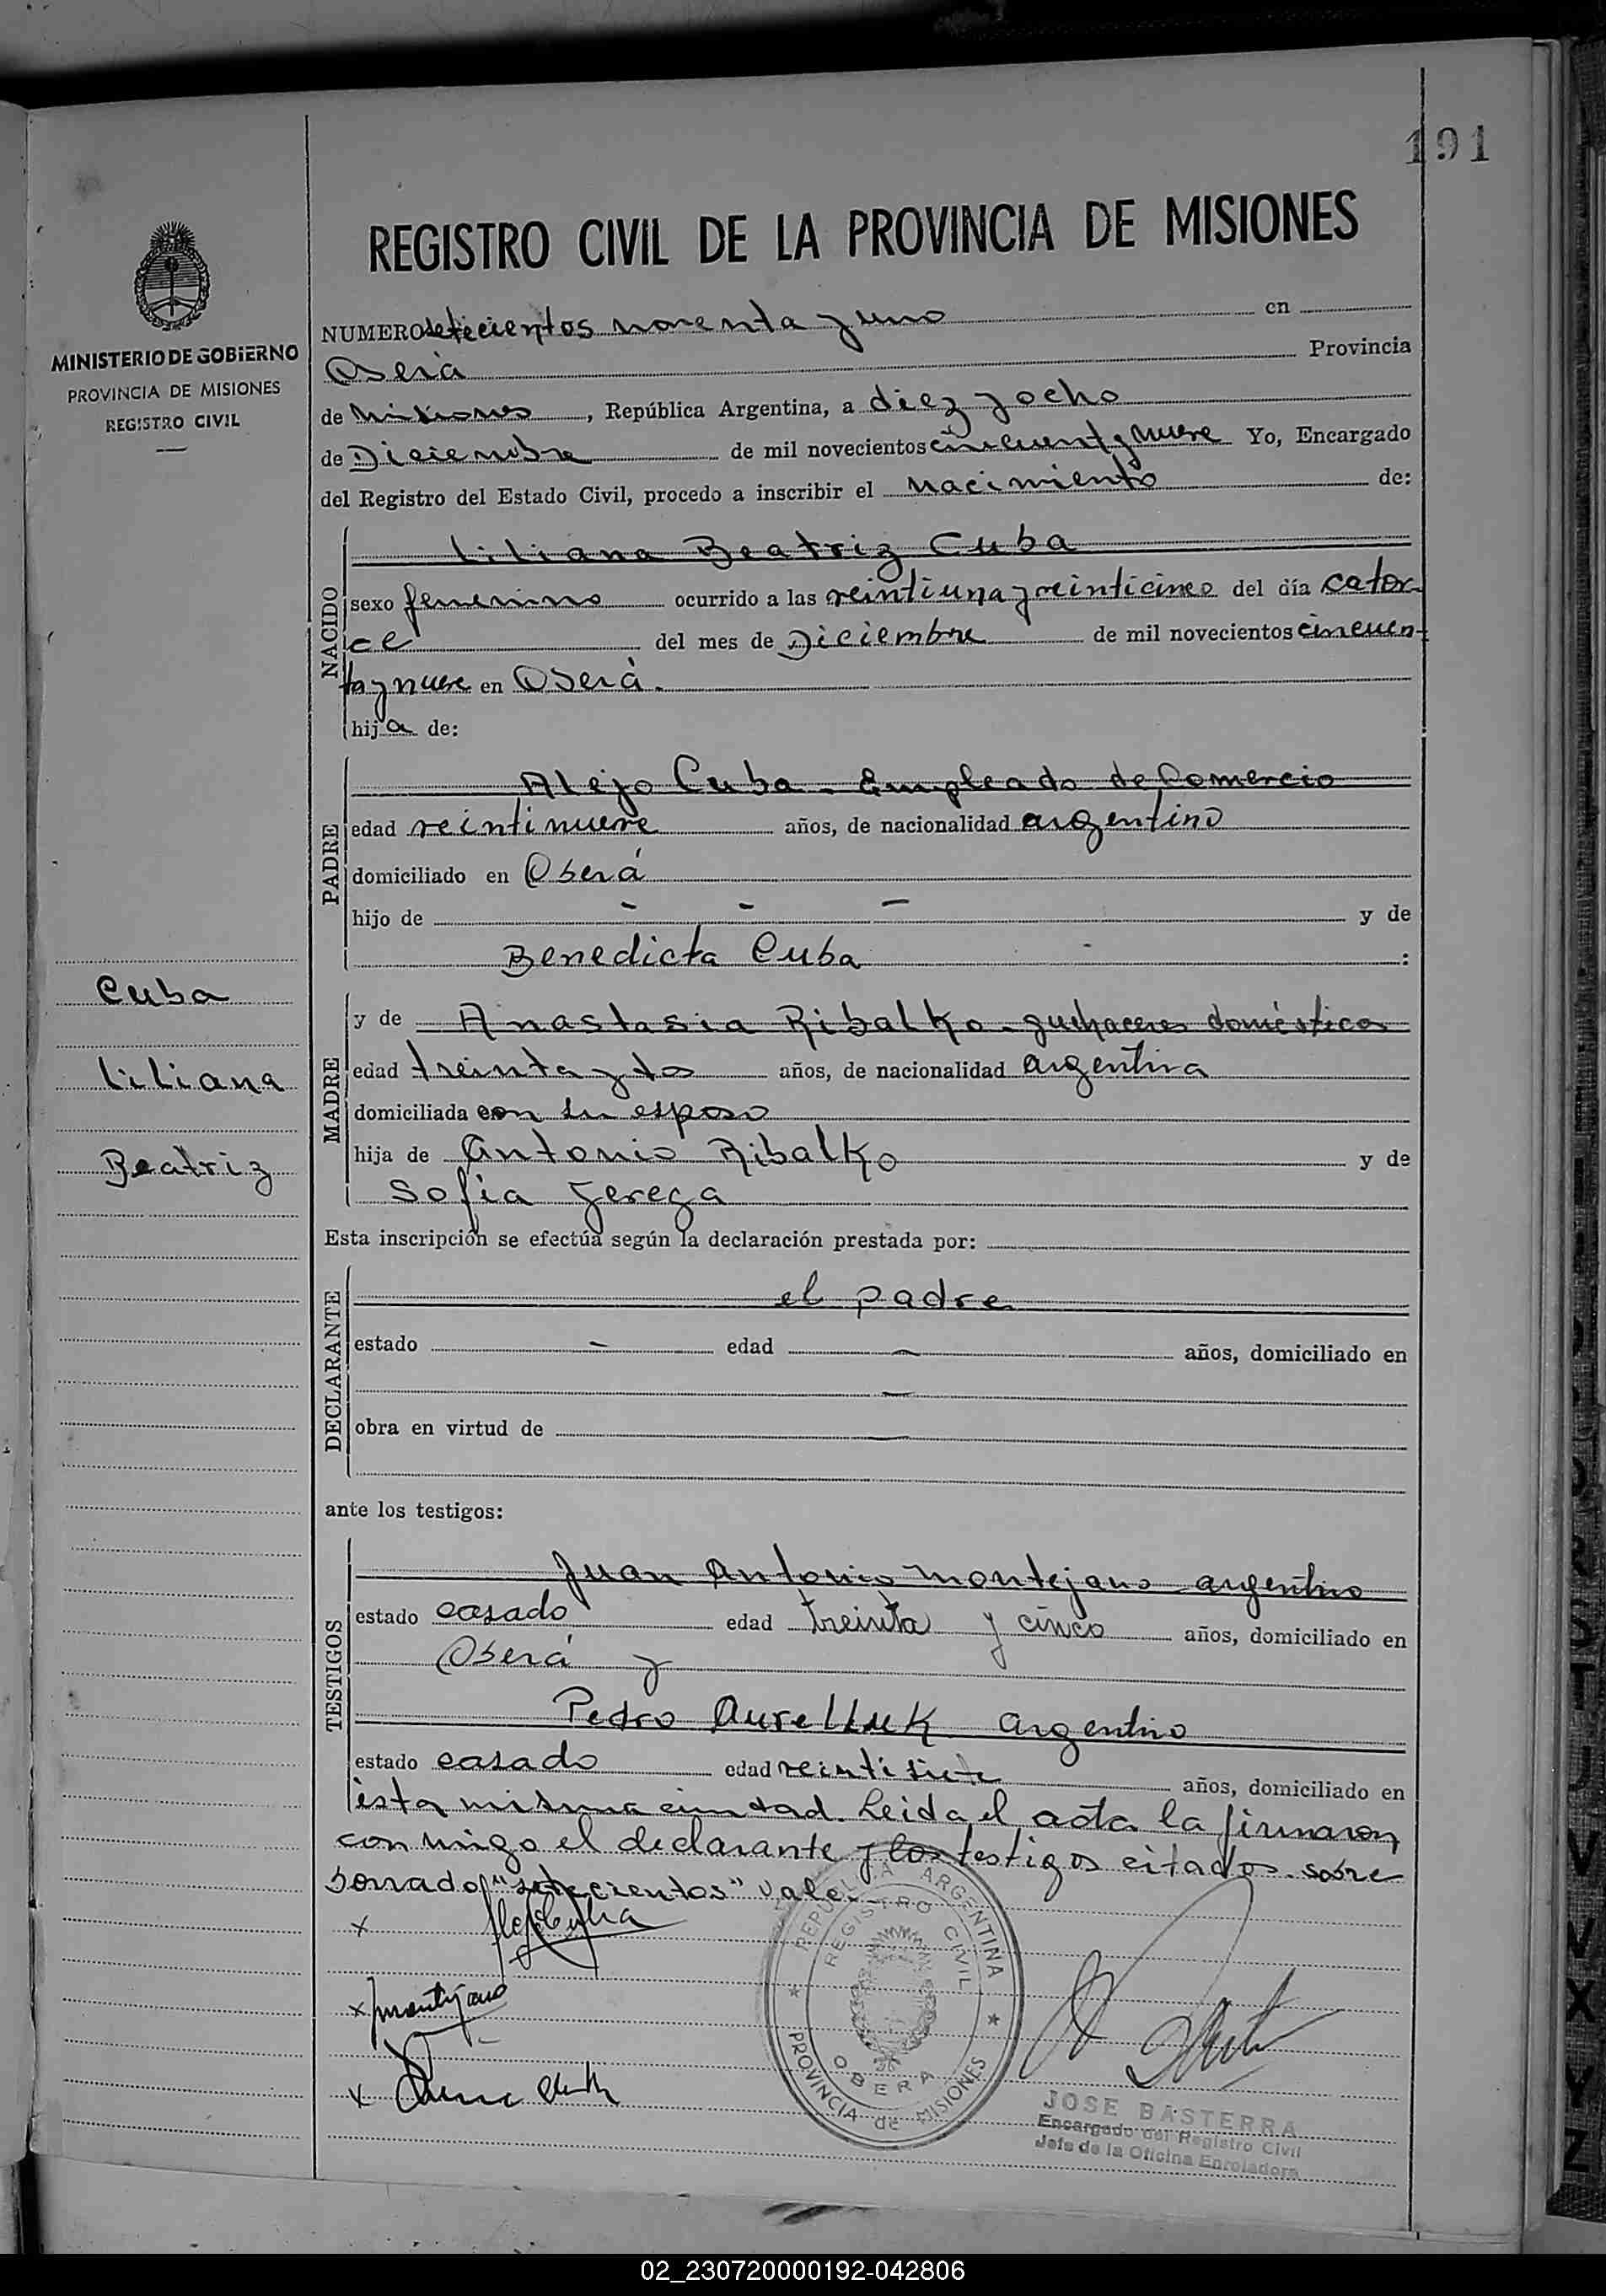 191
REGISTRO CIVIL DE LA PROVINCIA DE MISIONES
MINISTERIO DE GOBIERNO
PROVINCIA DE MISIONES
REGISTRO CIVIL
NUMERO setecientos noventa y uno en
Oberá Provincia
de Misiones, República Argentina, a diez y ocho
de Diciembre de mil novecientos cincuenta y nueve Yo, Encargado
del Registro del Estado Civil, procedo a inscribir el nacimiento de:
NACIDO
Liliana Beatriz Cuba
sexo femenino ocurrido a las veintiuna y veinticinco del día cator-
ce del mes de Diciembre de mil novecientos cincuen-
ta y nueve en Oberá.
hija de:
PADRE
Alejo Cuba. Empleado de Comercio
edad veintinueve años, de nacionalidad argentino
domiciliado en Oberá
hijo de - - - y de
Benedicta Cuba :
Cuba
Liliana
Beatriz
MADRE
y de Anastasia Ribalko. quehaceres domésticos
edad treinta y dos años, de nacionalidad argentina
domiciliada con su esposo
hija de Antonio Ribalko y de
Sofia Jerega
Esta inscripción se efectúa según la declaración prestada por:
DECLARANTE
el padre
estado - edad - años, domiciliado en
-
obra en virtud de -
ante los testigos:
TESTIGOS
Juan Antonio Montejano argentino
estado casado edad treinta y cinco años, domiciliado en
Oberá y
Pedro argentino
estado casado edad veintisiete años, domiciliado en
ésta misma ciudad. Leida el acta la firmaron
conmigo el declarante y los testigos citados. sobre
borrado "setecientos" vale.
x
x Montejano
x
REPUBLICA ARGENTINA
REGISTRO CIVIL
OBERA
PROVINCIA de MISIONES
JOSE BASTERRA
Encargado del Registro Civil
Jefe de la Oficina Enroladora
02_230720000192-042806